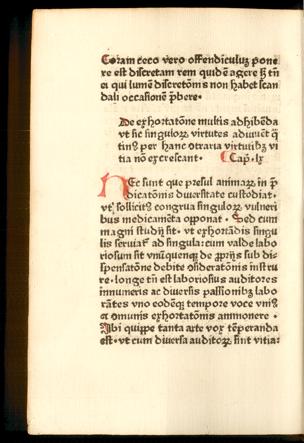 Coram ceco vero offendiculuz pone
re est discretam rem quidē agere sz tn̄
ei qui lumē discretōnis non habet scan
dali occasionē p̄bere·
De exhortatōne multis adhibēda
vt sic singulorꝝ virtutes adiuuēt ꝙ̄
tin9 per hanc ɔtraria virtutibꝫ vi
tia nō excrescant· Cap̄· lx
HEc sunt que presul animarꝝ in p̄
dicatōnis diuersitate custodiat·
vt sollicit9 congrua singulorꝝ vulneri
bus medicamēta opponat· Sed cum
magni studij sit· vt exhortādis singu
lis seruiat᷑ ad singula: cum valde labo
riosum sit vnūquenqꝫ de ꝓprijs sub di-
spensatōne debite ɔsideratōnis instru
re· longe tn̄ est laboriosius auditores
innumeris ac diuersis passionibꝫ labo
rātes vno eodēqꝫ tempore voce vni9
⁊ cōmunis exhortatōnis ammonere·
Ubi quippe tanta arte vox tēperanda
est· vt cum diuersa auditorꝝ sint vitia: